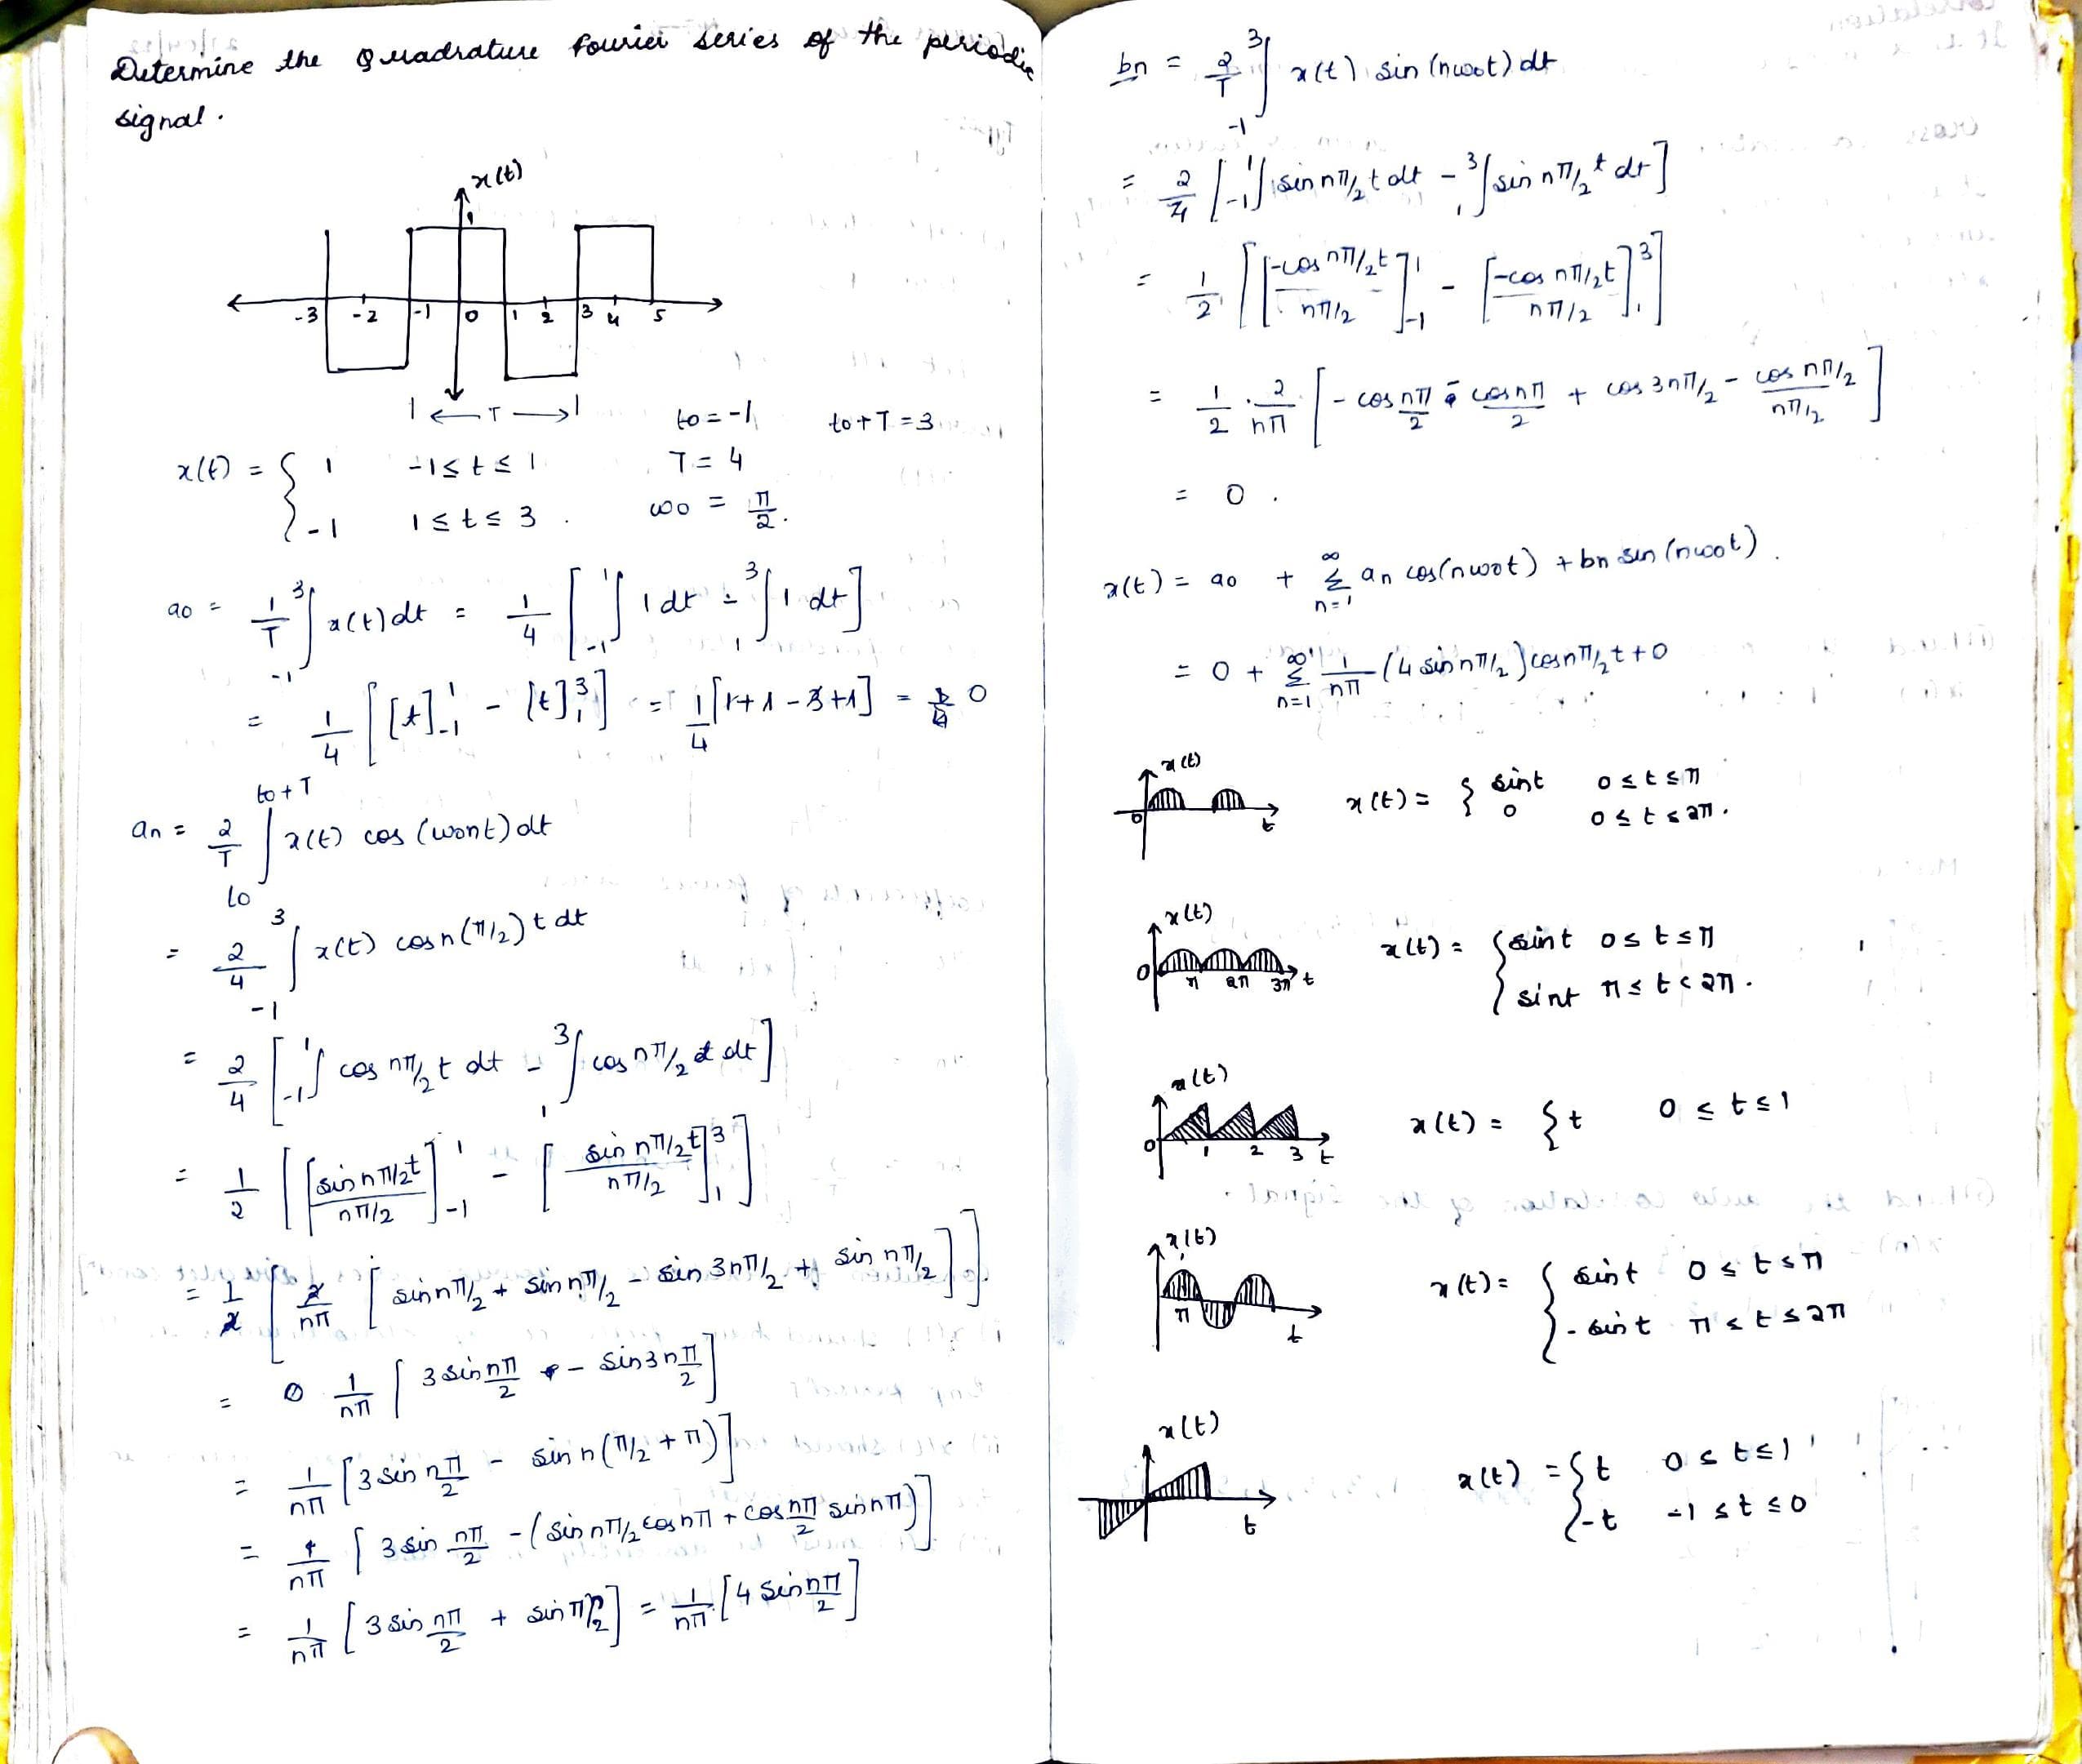 Determine the Quadrature Fourier series of the periodic
signal.
x(t)
1
-3 -2 -1 0 1 2 3 4 5
|← T →|
t0 = -1 t0+T = 3
x(t) = { 1 -1 ≤ t ≤ 1 T = 4
-1 1 ≤ t ≤ 3 . ω0 = π/2.
a0 = 1/T ∫_{-1}^{3} x(t) dt = 1/4 [ ∫_{-1}^{1} 1 dt - ∫_{1}^{3} 1 dt ]
= 1/4 [ [t]_{-1}^{1} - [t]_{1}^{3} ] = 1/4 [1+1-3+1] = 0
an = 2/T ∫_{t0}^{t0+T} x(t) cos (ω0nt) dt
= 2/4 ∫_{-1}^{3} x(t) cos n(π/2) t dt
= 2/4 [ ∫_{-1}^{1} cos nπ/2 t dt - ∫_{1}^{3} cos nπ/2 t dt ]
= 1/2 [ [ sin nπ/2 t / nπ/2 ]_{-1}^{1} - [ sin nπ/2 t / nπ/2 ]_{1}^{3} ]
= 1/2 [ 2/nπ [ sin nπ/2 + sin nπ/2 - sin 3nπ/2 + sin nπ/2 ] ]
= 1/nπ [ 3 sin nπ/2 - sin 3nπ/2 ]
= 1/nπ [ 3 sin nπ/2 - sin n(π/2 + π) ]
= 1/nπ [ 3 sin nπ/2 - ( sin nπ/2 cos nπ + cos nπ/2 sin nπ ) ]
= 1/nπ [ 3 sin nπ/2 + sin πn/2 ] = 1/nπ [ 4 sin nπ/2 ]
bn = 2/T ∫_{-1}^{3} x(t) sin (nω0t) dt
= 2/4 [ ∫_{-1}^{1} sin nπ/2 t dt - ∫_{1}^{3} sin nπ/2 t dt ]
= 1/2 [ [ -cos nπ/2 t / nπ/2 ]_{-1}^{1} - [ -cos nπ/2 t / nπ/2 ]_{1}^{3} ]
= 1/2 . 2/nπ [ - cos nπ/2 - cos nπ/2 + cos 3nπ/2 - cos nπ/2 / nπ/2 ]
= 0 .
x(t) = a0 + Σ_{n=1}^{∞} an cos(nω0t) + bn sin (nω0t) .
= 0 + Σ_{n=1}^{∞} 1/nπ (4 sin nπ/2) cos nπ/2 t + 0
x(t)
0 t
x(t) = { sint 0 ≤ t ≤ π
0 0 ≤ t ≤ 2π .
x(t)
0 π 2π 3π t
x(t) = { sint 0 ≤ t ≤ π
sint π ≤ t < 2π .
x(t)
0 1 2 3 t
x(t) = { t 0 ≤ t ≤ 1
x(t)
π t
x(t) = { sint 0 ≤ t ≤ π
- sint π ≤ t ≤ 2π
x(t)
t
x(t) = { t 0 ≤ t ≤ 1
-t -1 ≤ t ≤ 0